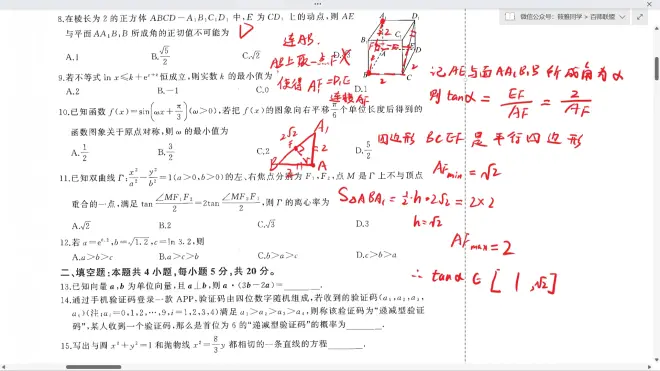 微信公众号：筱雅同学 > 百师联盟
8.在棱长为 2 的正方体 ABCD-A₁B₁C₁D₁ 中,E 为 CD₁ 上的动点,则 AE
与平面AA₁B₁B 所成角的正切值不可能为
A.1
B.√5/2
C.√2
D.√3
连AB₁
AB₁上取一点F
使得 AF=DE
连接AF
9.若不等式ln x≤k+eᵉ⁺ˣ恒成立,则实数 k 的最小值为
A.2
B.-1
C.0
D.1
10.已知函数 f(x)=sin(ωx+π/3)(ω>0),若把 f(x)的图象向右平移π/6个单位长度后得到的
函数图象关于原点对称,则 ω 的最小值为
A.1/2
B.3/2
C.2
D.5/2
11.已知双曲线Γ:x²/a²-y²/b²=1(a>0,b>0)的左、右焦点分别为 F₁,F₂,点 M 是 Γ 上不与顶点
重合的一点,满足 tan ∠MF₁F₂/2=2tan ∠MF₂F₁/2,则 Γ 的离心率为
A.√2
B.2
C.√3
D.3
12.若 a=e⁰·¹,b=√1.2,c=ln 3.2,则
A.a>b>c
B.a>c>b
C.b>a>c
D.c>b>a
二、填空题:本题共 4 小题,每小题 5 分,共 20 分。
13.已知向量 a,b 为单位向量,且 a⊥b,则 a·(3b-2a)=________.
14.通过手机验证码登录一款 APP,验证码由四位数字随机组成,若收到的验证码(a₁,a₂,a₃,
a₄)(注:aᵢ=0,1,2,…,9,i=1,2,3,4)满足 a₁>a₂>a₃>a₄,则称该验证码为“递减型验证
码”,某人收到一个验证码,那么是首位为 6 的“递减型验证码”的概率为________.
15.写出与圆 x²+y²=1 和抛物线 x²=8/3y 都相切的一条直线的方程________.
记AE与面AA₁B₁B 所成角为α
则 tanα = EF/AF = 2/AF
四边形 BCEF 是平行四边形
AFmin=√2
S△ABA₁=½·h·2√2=2×2
h=√2
AFmax=2
∴ tanα∈[1,√2]